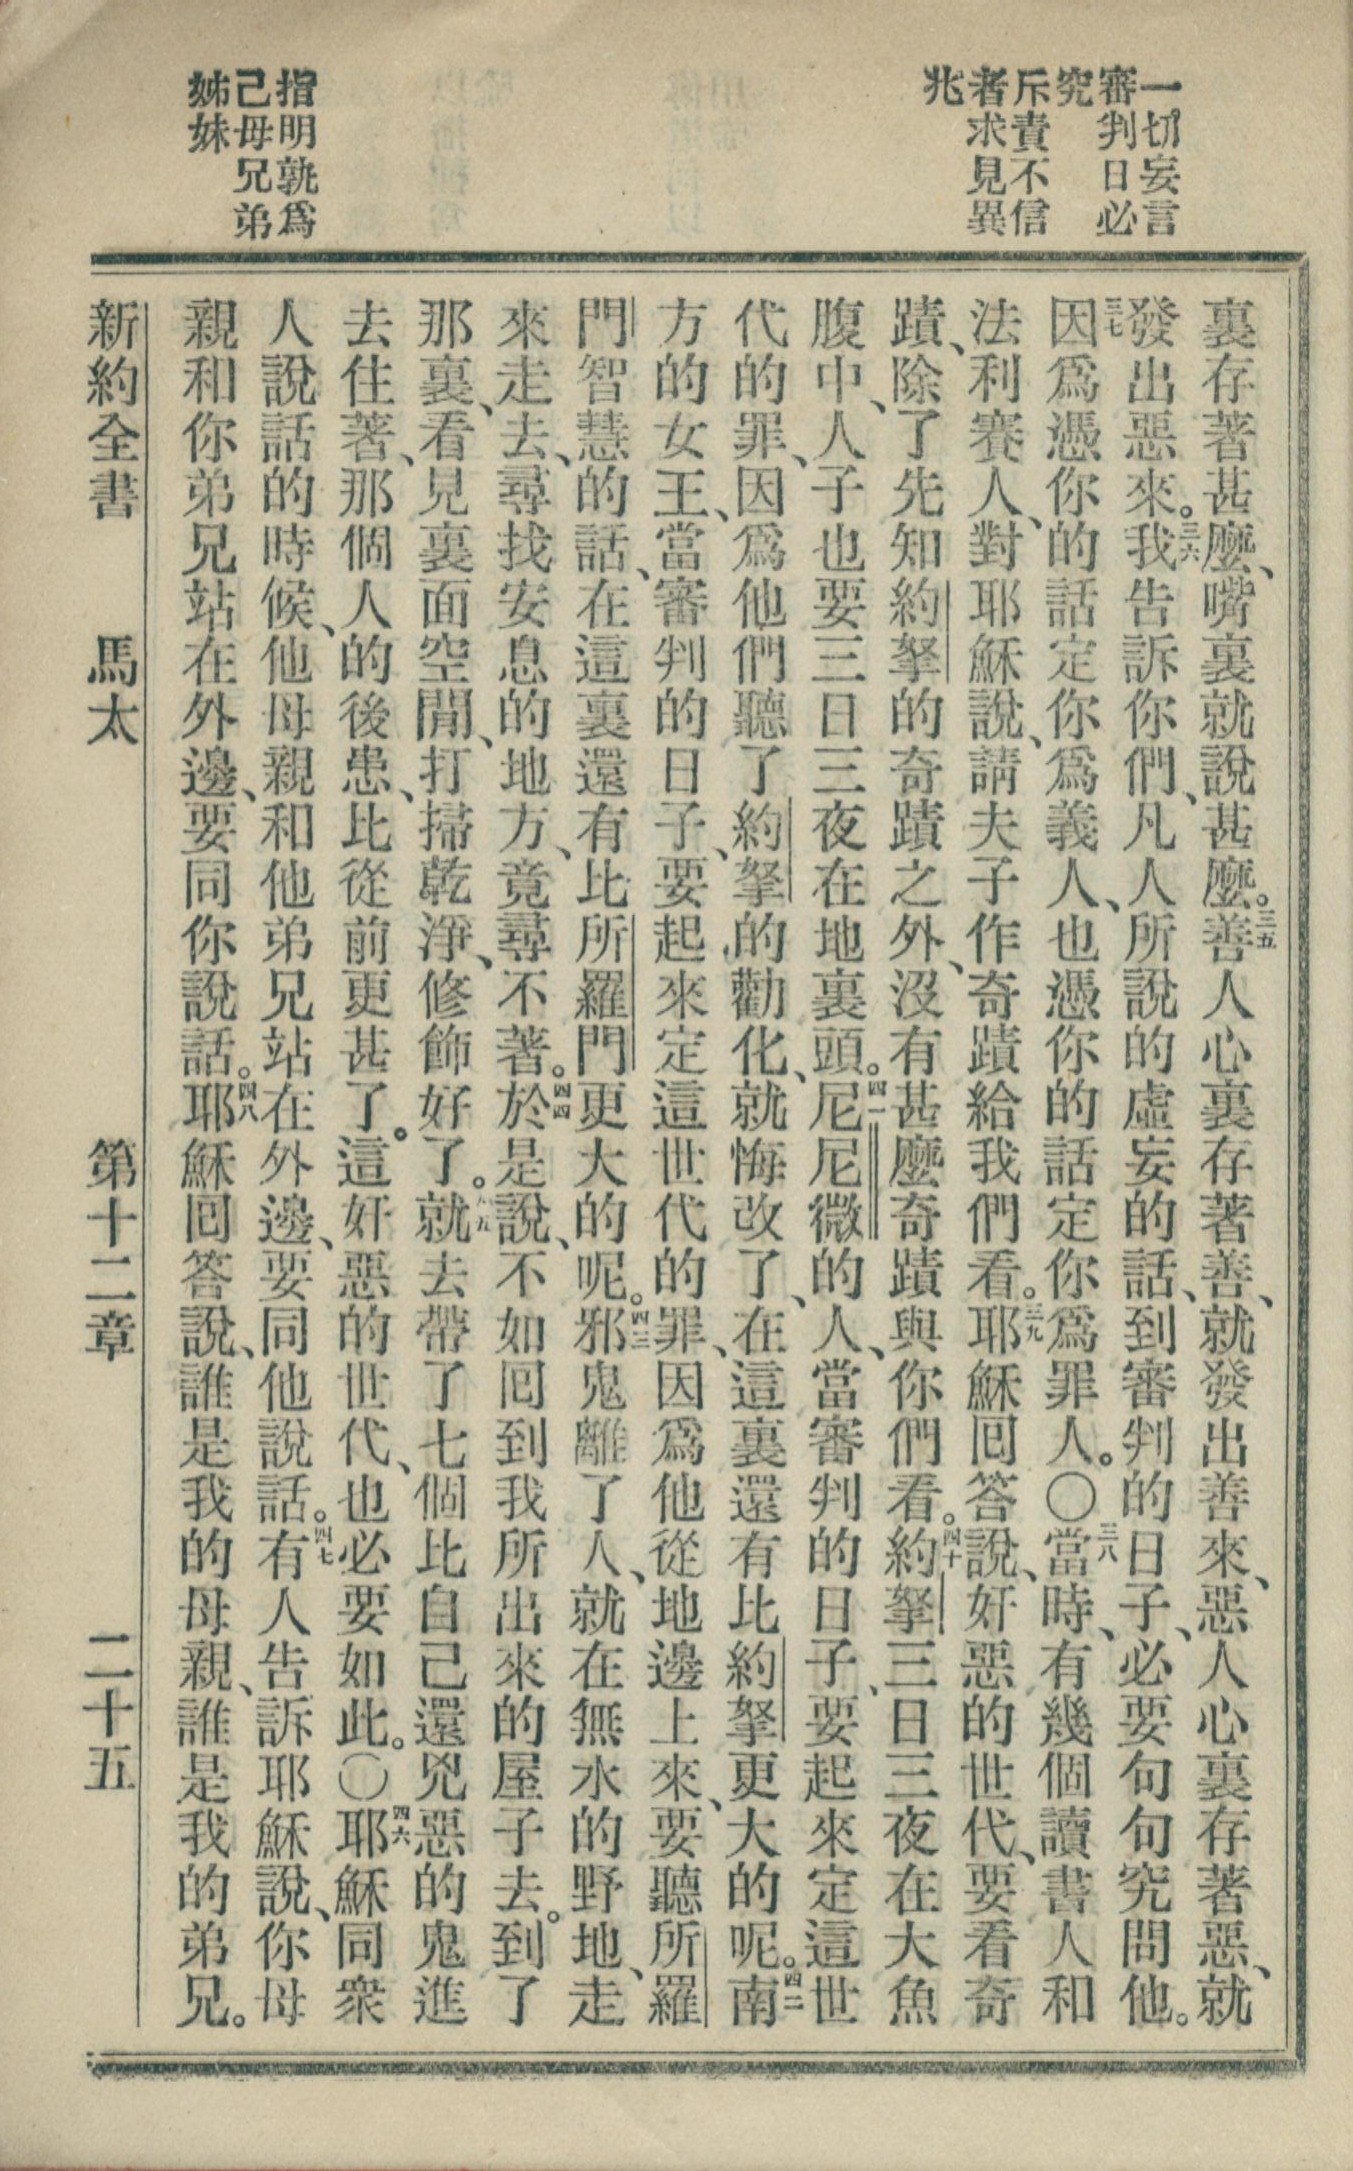 一切妄言
審判日必
究
斥責不信
者求見異
兆
指明孰爲
己母兄弟
姊妹
裏存著甚麼、嘴裏就說甚麼。三五善人心裏存著善、就發出善來、惡人心裏存著惡、就
發出惡來。三六我告訴你們、凡人所說的虛妄的話、到審判的日子、必要句句究問他。
三七因爲憑你的話定你爲義人、也憑你的話定你爲罪人。〇三八當時、有幾個讀書人和
法利賽人、對耶穌說、請夫子作奇蹟給我們看。三九耶穌回答說、奸惡的世代、要看奇
蹟、除了先知約拏的奇蹟之外、沒有甚麼奇蹟與你們看。四十約拏三日三夜在大魚
腹中、人子也要三日三夜在地裏頭。四一尼尼微的人、當審判的日子、要起來定這世
代的罪、因爲他們聽了約拏的勸化、就悔改了、在這裏還有比約拏更大的呢。四二南
方的女王、當審判的日子、要起來定這世代的罪、因爲他從地邊上來、要聽所羅
門智慧的話、在這裏還有比所羅門更大的呢。四三邪鬼離了人、就在無水的野地、走
來走去、尋找安息的地方、竟尋不著。四四於是說、不如回到我所出來的屋子去。到了
那裏、看見裏面空閒、打掃乾淨、修飾好了。四五就去帶了七個比自己還兇惡的鬼進
去住著、那個人的後患、比從前更甚了。這奸惡的世代、也必要如此。〇四六耶穌同衆
人說話的時候、他母親和他弟兄站在外邊、要同他說話。四七有人告訴耶穌說、你母
親和你弟兄站在外邊、要同你說話。四八耶穌回答說、誰是我的母親、誰是我的弟兄。
新約全書　馬太　第十二章　二十五